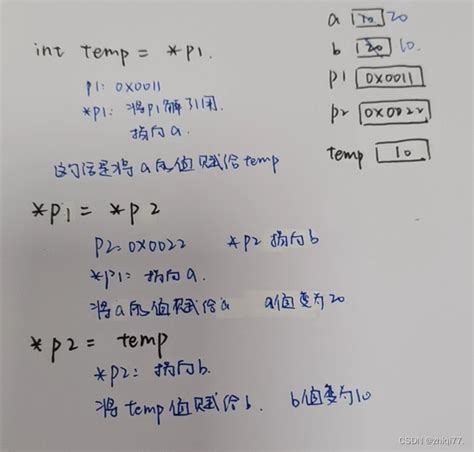 a 10 20
b 20 10.
int temp = *p1.
p1 0x0011
p1: 0x0011
*p1: 将p1解了引用.
p2 0x0022
指向a.
temp 10
这句话是将a的值赋给temp
*p1 = *p2
p2: 0x0022 *p2 指向b
*p1: 指向a.
将a的值赋给a a值变为20
*p2 = temp
*p2: 指向b.
将temp值赋给b. b值变为10
CSDN @zhiqi77.